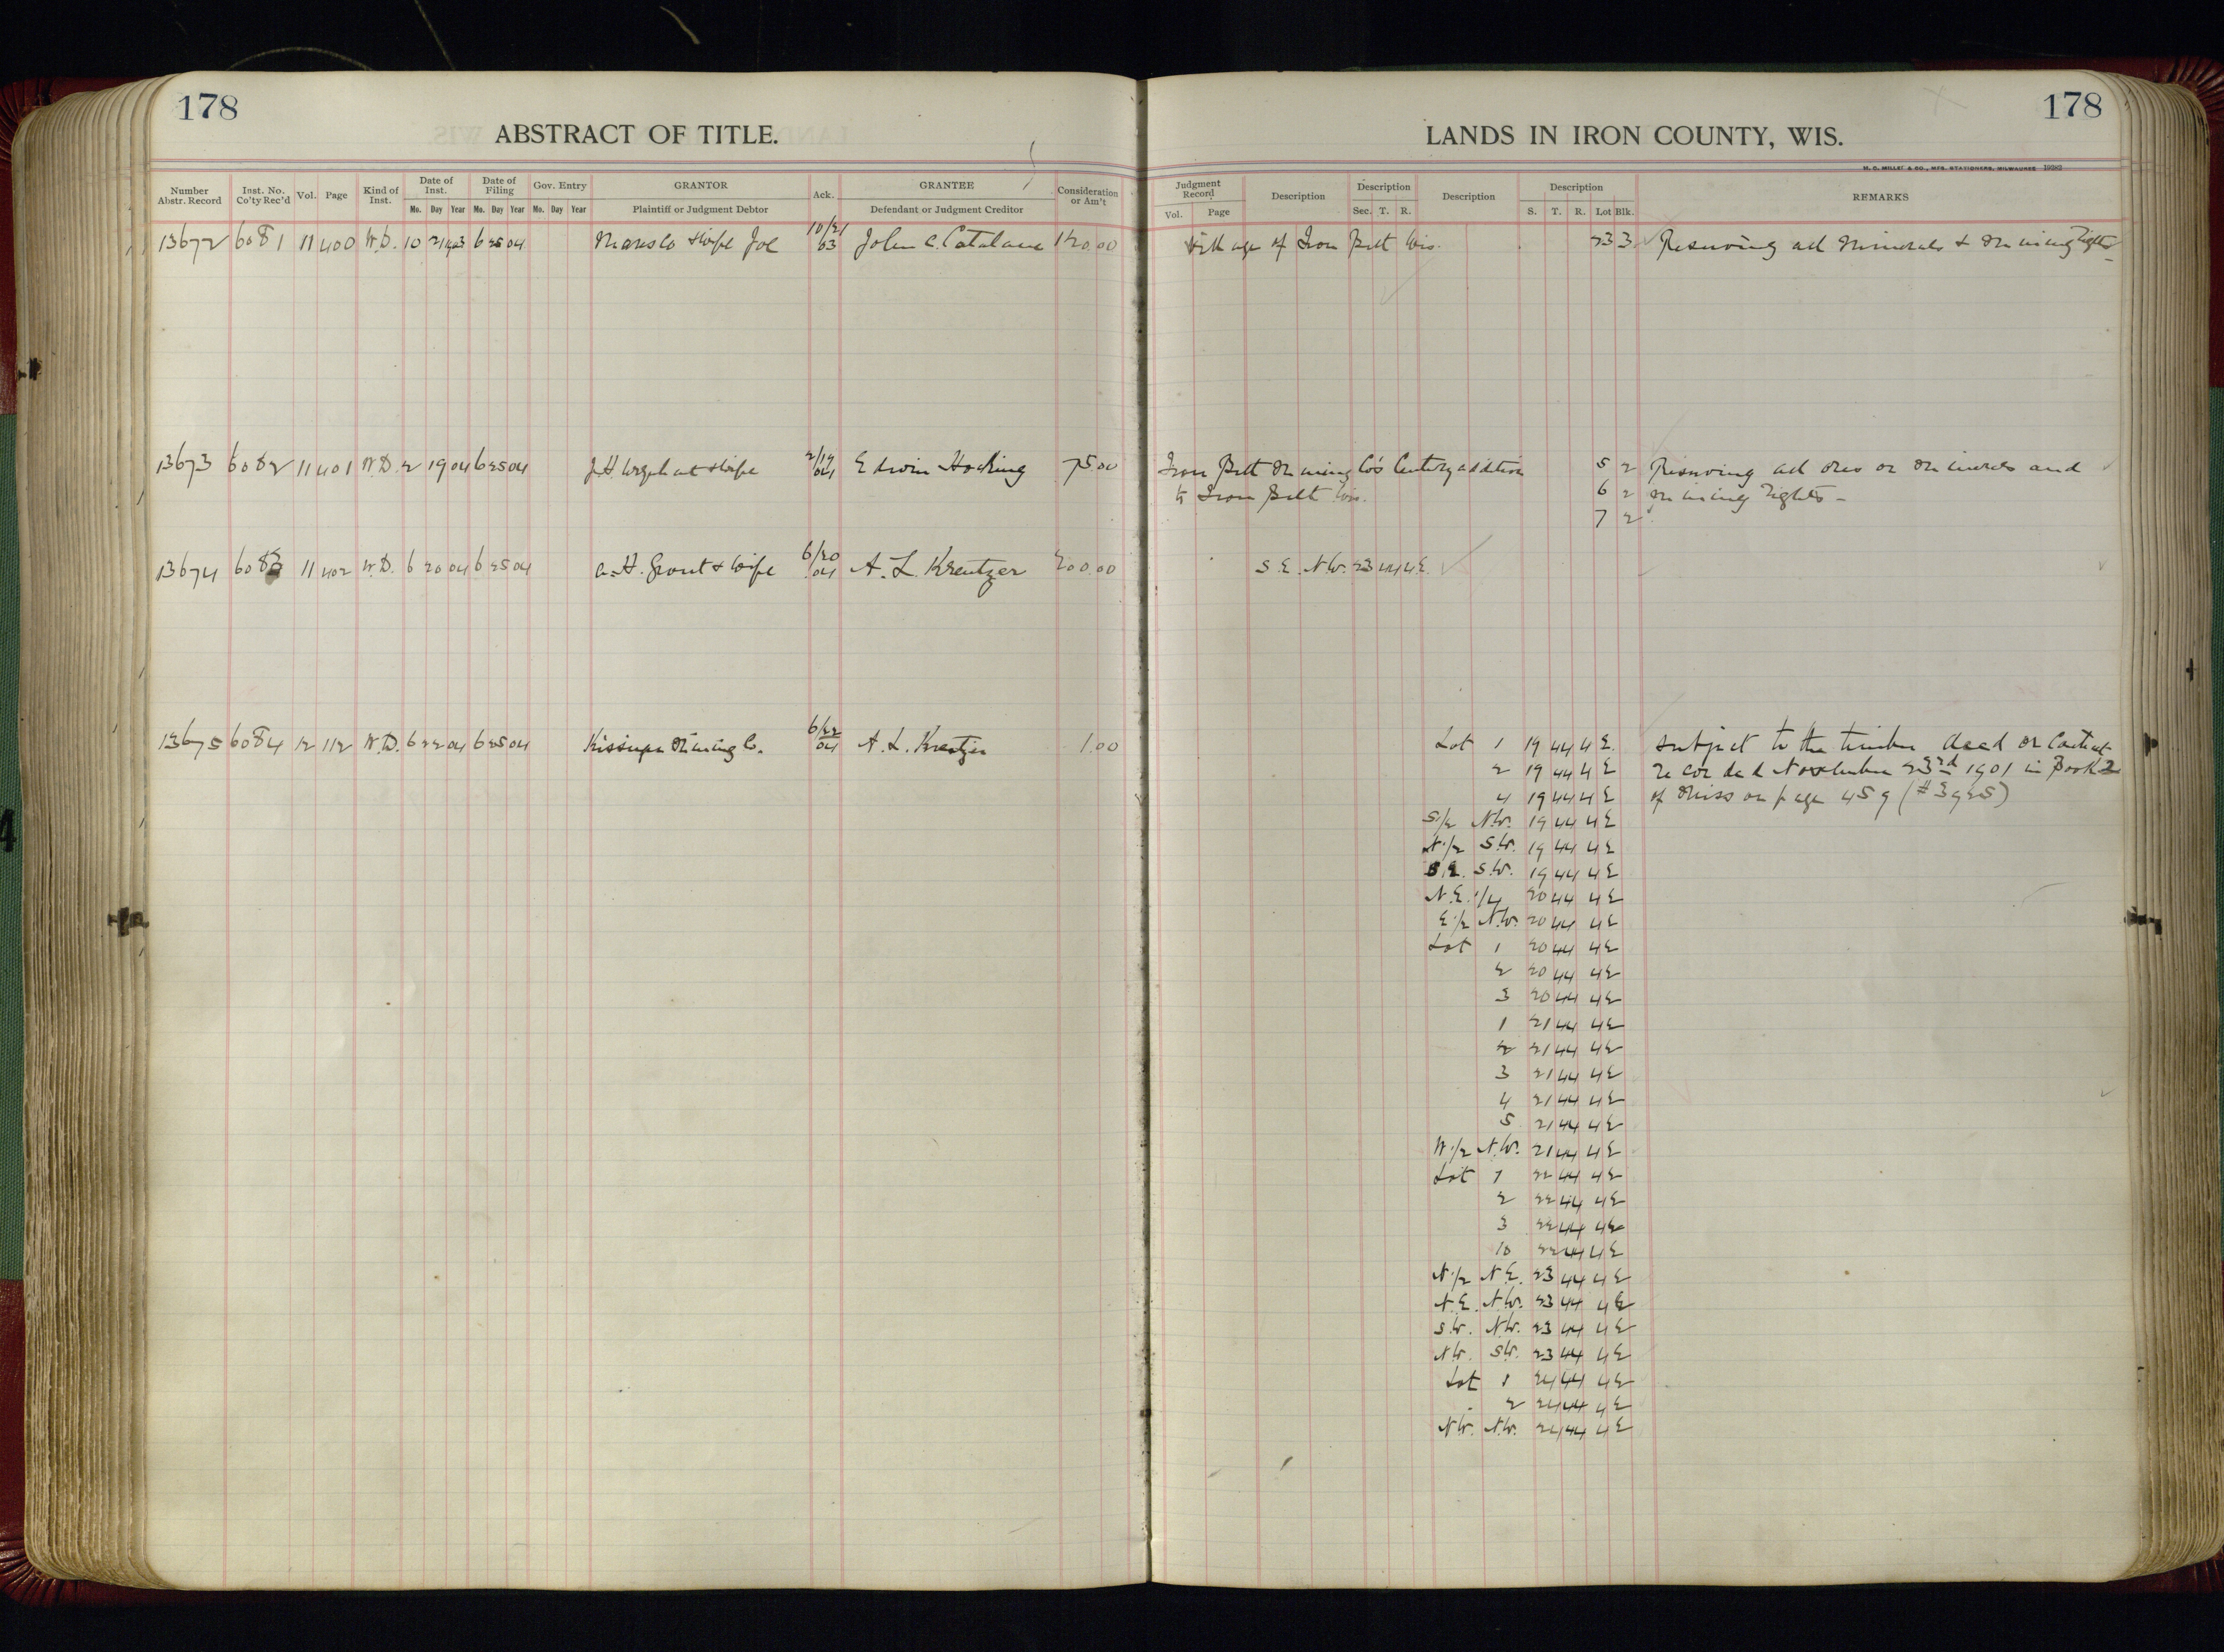 178
ABSTRACT OF TITLE.
Number Abstr. Record | Inst. No. Co'ty Rec'd | Vol. | Page | Kind of Inst. | Date of Inst. Mo. Day Year | Date of Filing Mo. Day Year | Gov. Entry Mo. Day Year | GRANTOR Plaintiff or Judgment Debtor | Ack. | GRANTEE Defendant or Judgment Creditor | Consideration or Am't
13672 6081 11 400 W.D. 10 21 1903 6 25 04 & wife Joe 10/21 03 John C. Catalane 120.00
13673 6082 11 401 W.D. 2 19 04 6 25 04 J.H. & wife 2/19 04 Edwin Hocking 75.00
13674 6083 11 402 W.D. 6 20 04 6 25 04 A.H. Grout & wife 6/20 04 A. L. Kreutzer 200.00
13675 6084 12 112 W.D. 6 22 04 6 25 04 Mining Co. 6/22 04 A. L. Kreutzer 1.00
178
LANDS IN IRON COUNTY, WIS.
H. C. MILLER & CO., MFG. STATIONERS, MILWAUKEE 19282
Judgment Record Vol. Page | Description | Description Sec. T. R. | Description | Description S. T. R. Lot Blk. | REMARKS
Village of Iron Belt Wis. 23 3 Reserving all minerals & mining rights
Iron Belt Mining Co's Century addition 5 2 Reserving all ores or minerals and
to Iron Belt Wis. 6 2 mining rights -
7 2
S.E. N.W. 23 44 4E.
Lot 1 19 44 4 E. Subject to the timber deed or Contract
2 19 44 4 E recorded November 23rd 1901 in Book 2
4 19 44 4 E of Miss on page 459 (#3925)
S.1/2 N.W. 19 44 4 E
N.1/2 S.W. 19 44 4 E
S.E. S.W. 19 44 4 E
N.E. 1/4 20 44 4 E
E.1/2 N.W. 20 44 4 E
Lot 1 20 44 4 E
2 20 44 4 E
3 20 44 4 E
1 21 44 4 E
2 21 44 4 E
3 21 44 4 E
4 21 44 4 E
5 21 44 4 E
W.1/2 N.W. 21 44 4 E
Lot 1 22 44 4 E
2 22 44 4 E
3 22 44 4 E
10 22 44 4 E
N.1/2 N.E. 23 44 4 E
N.E. N.W. 23 44 4 E
S.W. N.W. 23 44 4 E
N.W. S.W. 23 44 4 E
Lot 1 24 44 4 E
2 24 44 4 E
N.W. N.W. 24 44 4 E